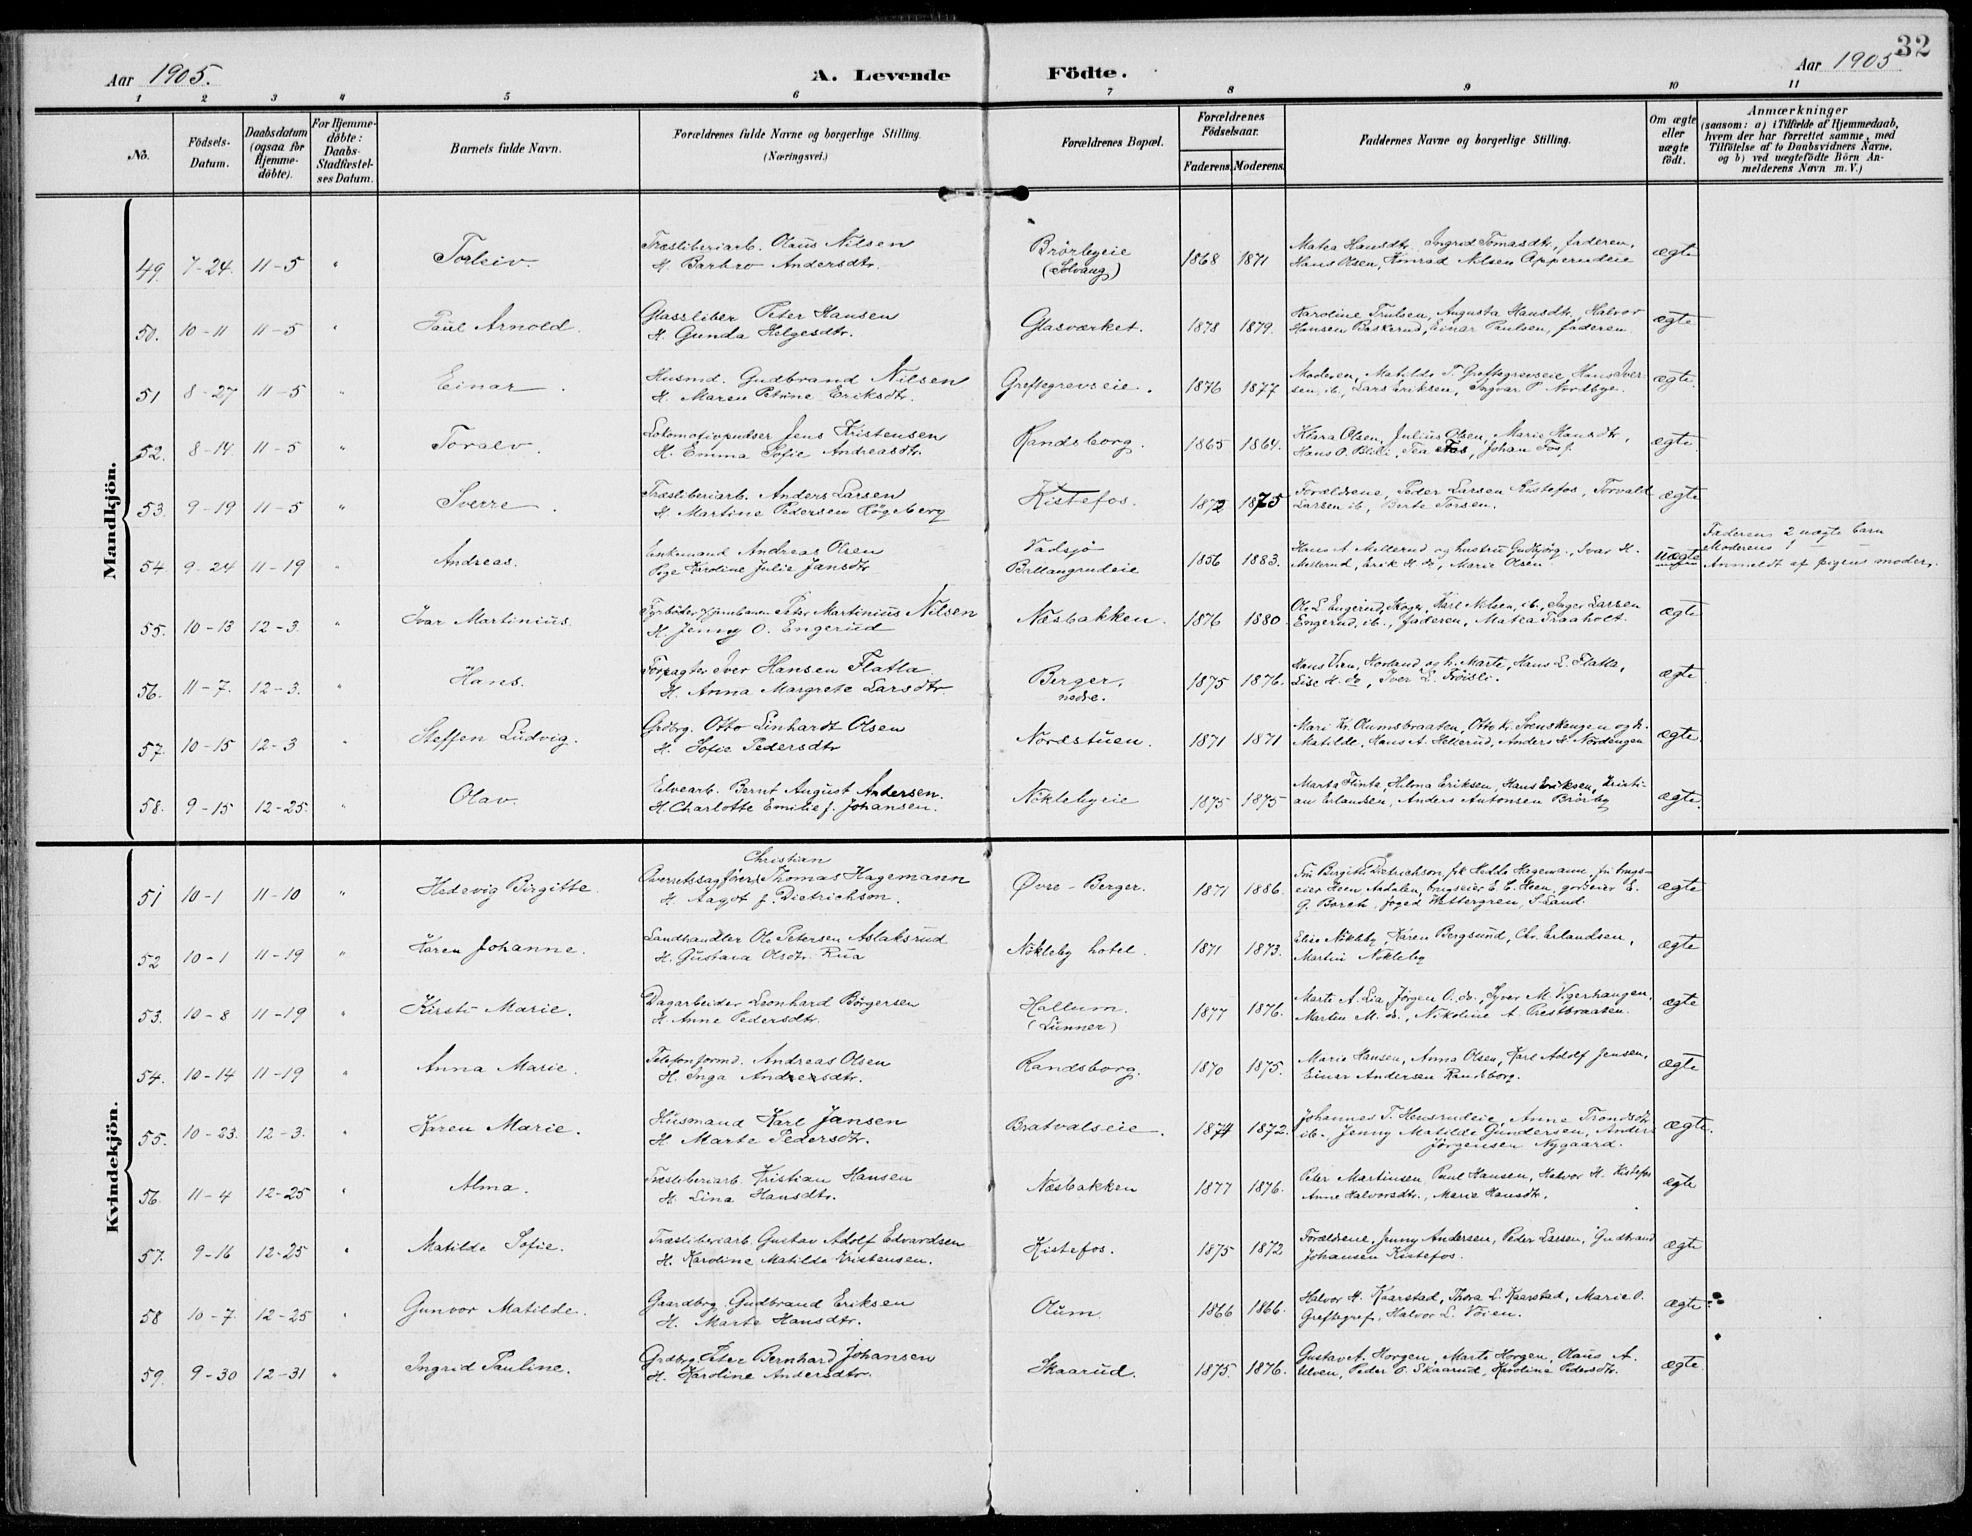 32
Aar 1905.
A. Levende Födte.
Aar 1905
1 2 3 4 5 6 7 8 9 10 11
No.
Födsels-Datum.
Daabsdatum (ogsaa for Hjemmedöbte).
For Hjemmedöbte: Daabs-Stadfæstelses Datum.
Barnets fulde Navn.
Forældrenes fulde Navne og borgerlige Stilling.
(Næringsvei.)
Forældrenes Bopæl.
Forældrenes Födselsaar.
Faderens. Moderens.
Faddernes Navne og borgerlige Stilling.
Om ægte eller uægte födt.
Anmærkninger
(saasom: a) i Tilfælde af Hjemmedaab,
hvem der har forrettet samme, med
Tilföielse af to Daabsvidners Navne,
og b) ved uægtefödte Börn An-
melderens Navn m. V.)
Mandkjön.
49. 7-24. 11-5 " Torleiv. Træsliberiarb. Olaus Nilsen Brörbyeie 1868 1871 Matea Hansdtr. Ingrid Tomasdtr, faderen, ægte
H. Barbro Andersdtr. (Solvang) Hans Olsen, Konrad Nilsen Opperudeie
50. 10-11 11-5 " Paul Arnold. Glassliber Peter Hansen Glasværket. 1878 1879. Karoline Trulsen, Augusta Hansdtr, Halvor ægte
H. Gunda Helgesdtr. Hansen Baskerud, Einar Paulsen, faderen
51 8-27 11-5 " Einar Husmd. Gudbrand Nilsen Greftegrevseie. 1876 1877 Moderen, Matilde T. Greftegrevseie, Hans Iver- ægte.
H. Maren Petrine Eriksdtr. sen ib., Lars Eriksen, Ingvar P. Nordbye.
52. 8-14 11-5 " Toralv. Lokomotivpudser Jens Kristensen Randsborg. 1865 1864. Klara Olsen, Julius Olsen, Marie Hansdtr, ægte
H. Emma Sofie Andreasdtr. Hans O. Blili, Tea Fos, Johan Fos f.
53. 9-19 11-5 " Sverre. Træsliberiarb. Anders Larsen Kistefos. 1872 1875 Forældrene, Peder Larsen Kistefos, Torvald ægte
H. Martine Pedersen Högeberg Larsen ib, Berte Torsen.
54 9-24 11-19 " Andreas. Enkemand Andreas Olsen Vadsjö 1856 1883. Hans A. Mellerud og hustru Gudbjørg, Ivar H. uægte Faderens 2 uægte barn
Pige Karoline Julie Jansdtr Ballangrudeie Mellerud, Erik H. do, Marie Olsen Moderens 1 —
Anmeldt af pigens moder.
55. 10-13 12-3. " Ivar Martinius. Fyrböder v/jernbanen Peter Martinius Nilsen Næsbakken. 1876 1880. Ole L. Engerud, Skoger, Karl Nilsen, ib., Inger Larsen ægte
H. Jenny O. Engerud Engerud, ib., faderen, Matea Traaholt.
56. 11-7. 12-3. " Hans. Forpagter Iver Hansen Flatla Berger, 1875 1876. Hans Vien, Hovland og h. Marte, Hans L. Flatla, ægte
H. Anna Margrete Larsdtr nedre. Lise H. do, Iver L. Fröisli.
57. 10-15 12-3 " Steffen Ludvig. Grdbrg. Otto Linhardt Olsen Nordstuen. 1871 1871 Mari Kr. Olumsbraaten, Otto K. Svenskengen og h. ægte.
H. Sofie Pedersdtr Matilde, Hans A. Hellerud, Anders H. Nordengen
58. 9-15 12-25. " Olav. Elvearb. Bernt August Andersen. Nöklebyeie 1875 1875 Marta Flinta, Hilma Eriksen, Hans Eriksen, Kristi- ægte.
H. Charlotte Emilie f. Johansen. an Erlandsen, Anders Antonsen Brörby
Kvindekjön.
51 10-1 11-10 " Hedevig Birgitte. Overretssagförer Christian Thomas Hagemann Øvre-Berger. 1871 1886. Fru Birgitte Dietrichson, frk Hedda Hagemann, fru brugs- ægte
H. Aagot f. Dietrichson. eier Heen Aadalen, brugseier E. C. Heen, godseier E.
G. Borch, foged Wettergren, S. Land.
52 10-1 11-19 " Karen Johanne. Landhandler Ole Petersen Aslaksrud Nökleby hotel. 1871 1873. Elise Nökleby, Karen Bergsund, Chr. Erlandsen, ægte
H. Gustava Olsdtr. Rua Martin Nökleby
53. 10-8 11-19 " Kirsti Marie. Dagarbeider Leonhard Börgersen Hallum. 1877 1876. Marte A. Lia, Jörgen O. do., Syver M. Vigerhaugen, ægte
H. Anne Pedersdtr. (Lunner) Martin M. do., Nikoline A. Prestbraaten.
54. 10-14 11-19 " Anna Marie. Telefonformd. Andreas Olsen Randsborg. 1870 1875. Marie Hansen, Anna Olsen, Karl Adolf Jensen, ægte
H. Inga Andersdtr. Einar Andersen Randsborg.
55. 10-23. 12-3. " Karen Marie. Husmand Karl Jansen Bratvalseie. 1874 1872. Johannes T. Hensrudeie, Anne Trondsdtr ægte.
H. Marte Pedersdtr. ib. Jenny Matilde Gundersen, Anders
Jörgensen Nygaard.
56. 11-4 12-25 " Alma. Træsliberiarb. Kristian Hansen Næsbakken 1877 1876. Peter Martinsen, Paul Hansen, Halvor H. Kistefos ægte
H. Lina Hansdtr. Anne Halvorsdtr., Marie Hansdtr.
57. 9-16 12-25 " Matilde Sofie. Træsliberiarb. Gustav Adolf Edvardsen Kistefos. 1875 1872 Forældrene, Jenny Andersen, Peder Larsen, Gudbrand ægte
H. Karoline Matilde Kristensen. Johansen Kistefos.
58 10-7. 12-25 " Gunvor Matilde. Gaardbrg. Gudbrand Eriksen Olum. 1866 1866. Halvor H. Kaarstad, Thora L. Kaarstad, Marie O. ægte
H. Marte Hansdtr. Greftegref, Halvor L. Vöien.
59. 9-30 12-31 " Ingrid Pauline. Grdbrg. Peter Bernhard Johansen Skaarud. 1875. 1876. Gustav A. Horgen, Marte Horgen, Olaus A. ægte
H. Karoline Andersdtr. Ulven, Peder O. Skaarud, Karoline Pedersdtr.